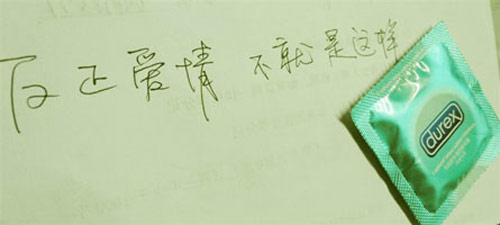 反正爱情 不就是这样
durex